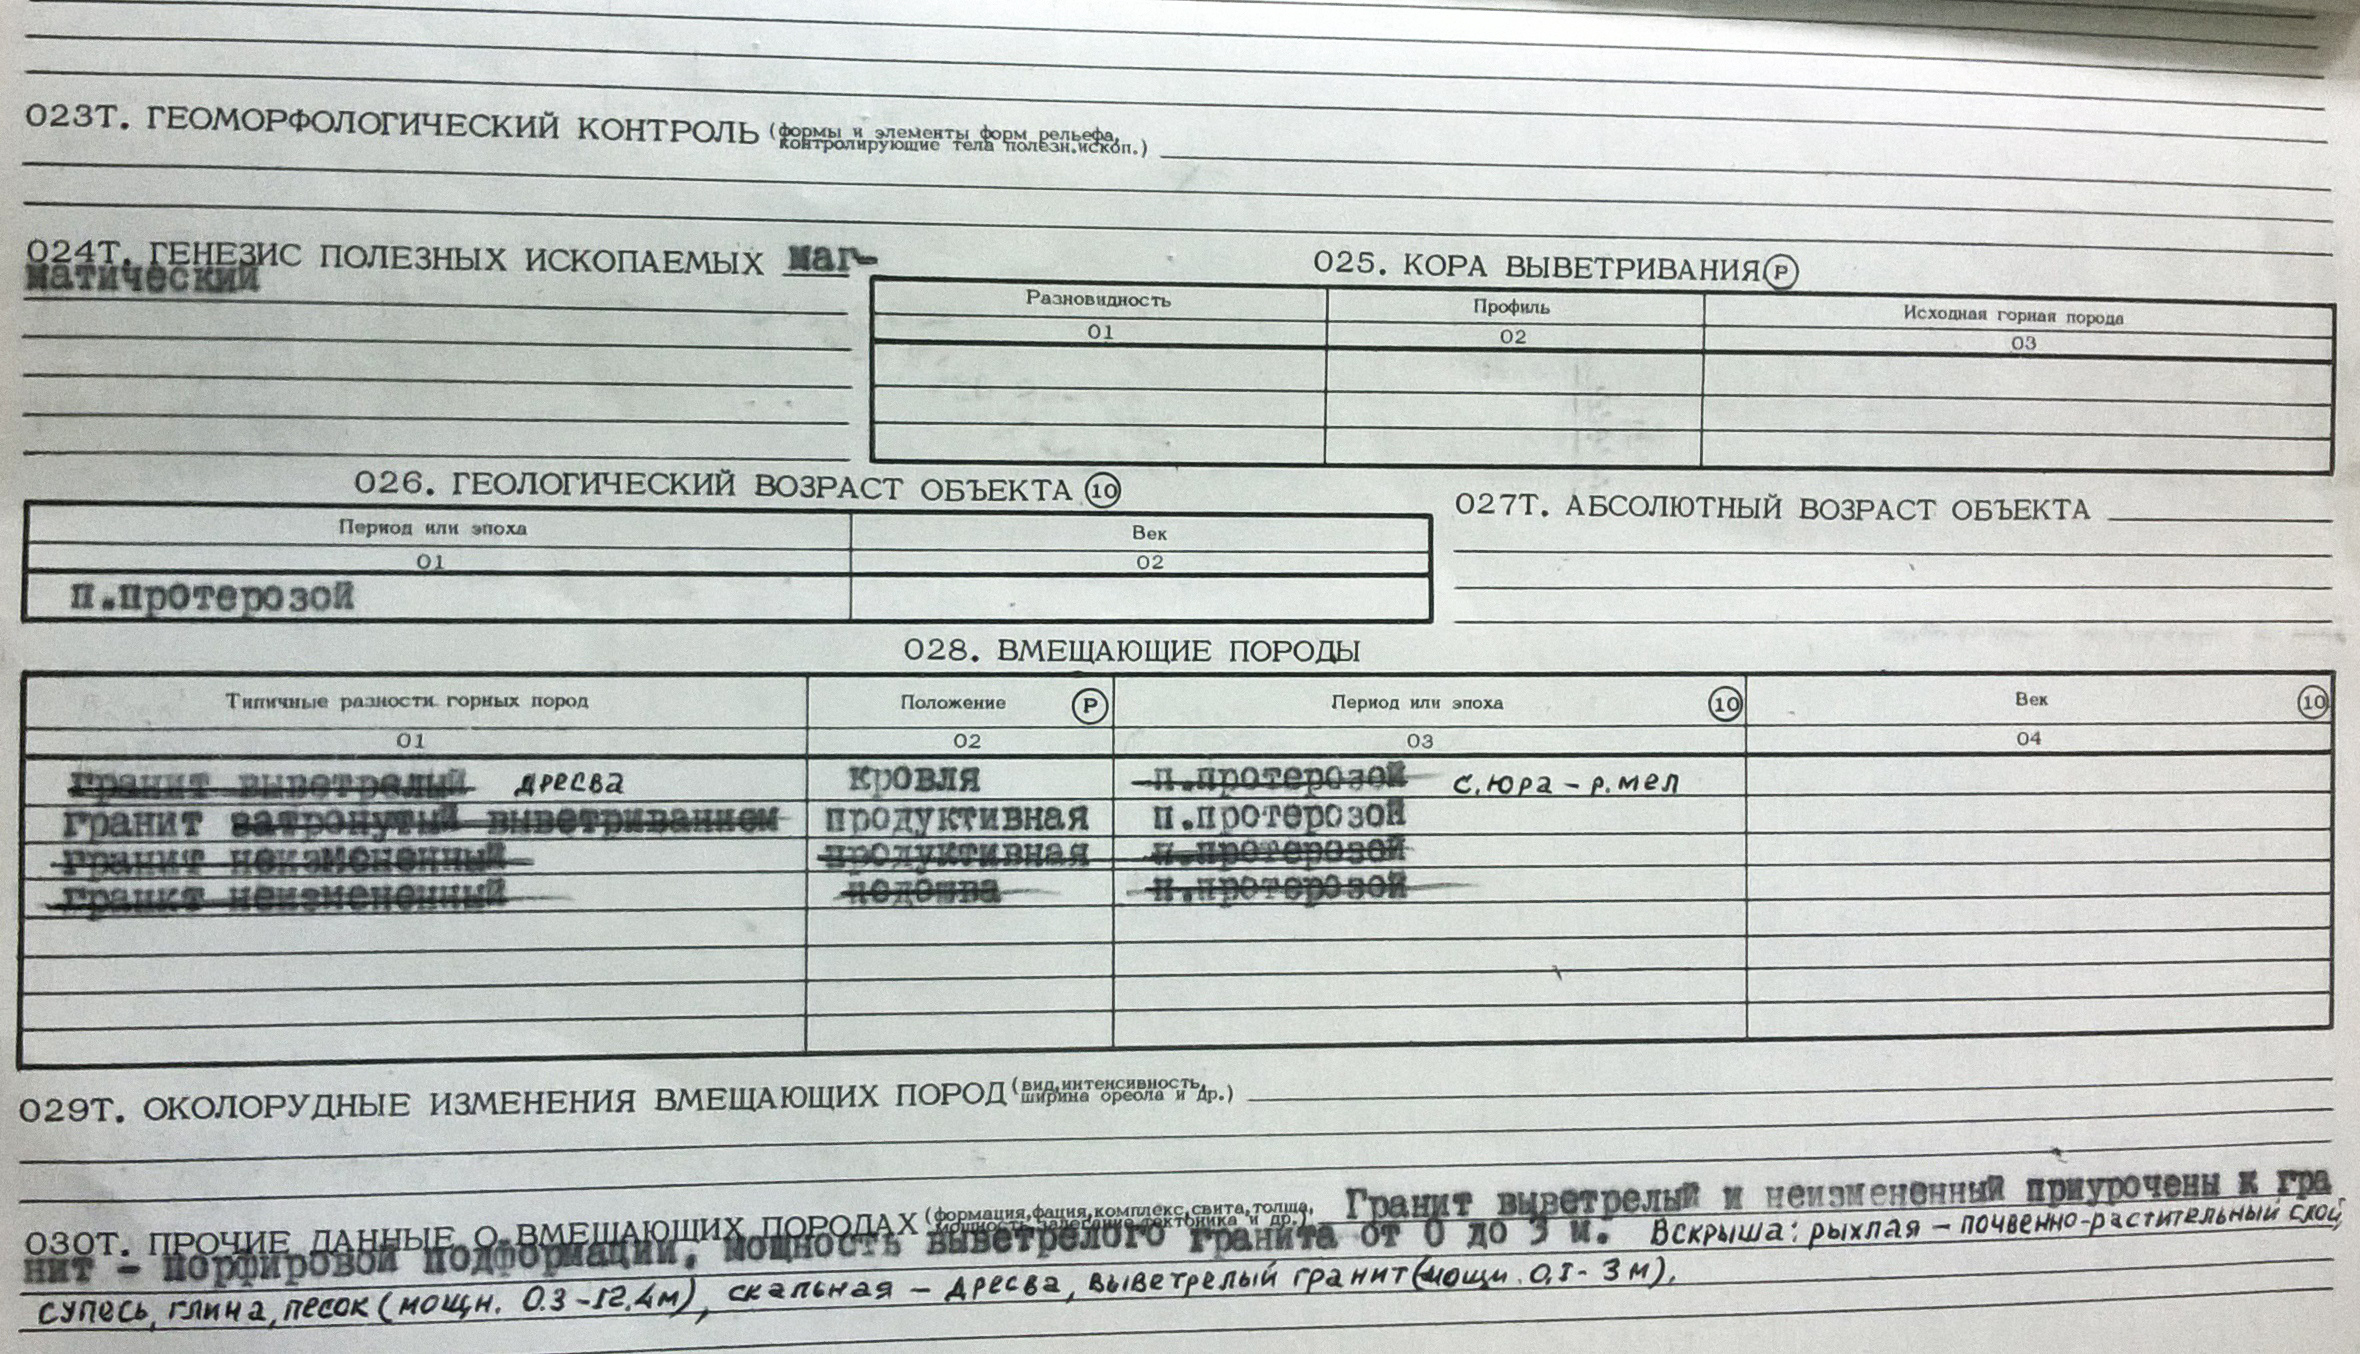 023Т. ГЕОМОРФОЛОГИЧЕСКИЙ КОНТРОЛЬ (формы и элементы форм рельефа,
контролирующие тела полезн.ископ.)
024Т. ГЕНЕЗИС ПОЛЕЗНЫХ ИСКОПАЕМЫХ маг-
матический
025. КОРА ВЫВЕТРИВАНИЯ Р
Разновидность Профиль Исходная горная порода
01 02 03
026. ГЕОЛОГИЧЕСКИЙ ВОЗРАСТ ОБЪЕКТА 10
Период или эпоха Век
01 02
п.протерозой
027Т. АБСОЛЮТНЫЙ ВОЗРАСТ ОБЪЕКТА
028. ВМЕЩАЮЩИЕ ПОРОДЫ
Типичные разности горных пород Положение Р Период или эпоха 10 Век 10
01 02 03 04
гранит выветрелый дресва кровля п.протерозой с.юра - р.мел
гранит затронутый выветриванием продуктивная п.протерозой
гранит неизмененный продуктивная п.протерозой
гранит неизмененный подошва п.протерозой
029Т. ОКОЛОРУДНЫЕ ИЗМЕНЕНИЯ ВМЕЩАЮЩИХ ПОРОД (вид,интенсивность,
ширина ореола и др.)
030Т. ПРОЧИЕ ДАННЫЕ О ВМЕЩАЮЩИХ ПОРОДАХ (формация,фация,комплекс,свита,толща,
мощность,залегание,тектоника и др.) Гранит выветрелый и неизмененный приурочены к гра
нит - порфировой подформации, мощность выветрелого гранита от 0 до 3 м. Вскрыша: рыхлая - почвенно-растительный слой,
супесь, глина, песок (мощн. 0.3-12.4м), скальная - дресва, выветрелый гранит (мощн. 0,1-3м).